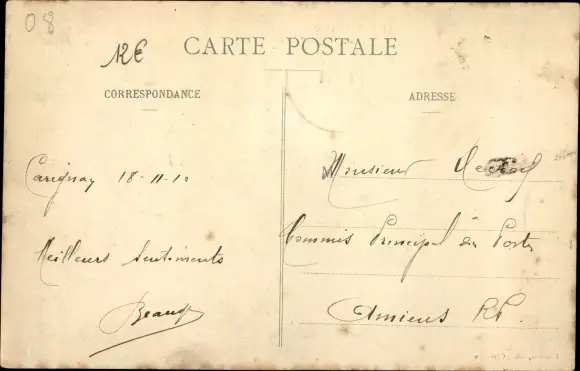 08
12€
CARTE POSTALE
CORRESPONDANCE
ADRESSE
Carignan 18-11-10
Meilleurs Sentiments
Monsieur
Commis Principal des Postes
Amiens RP.